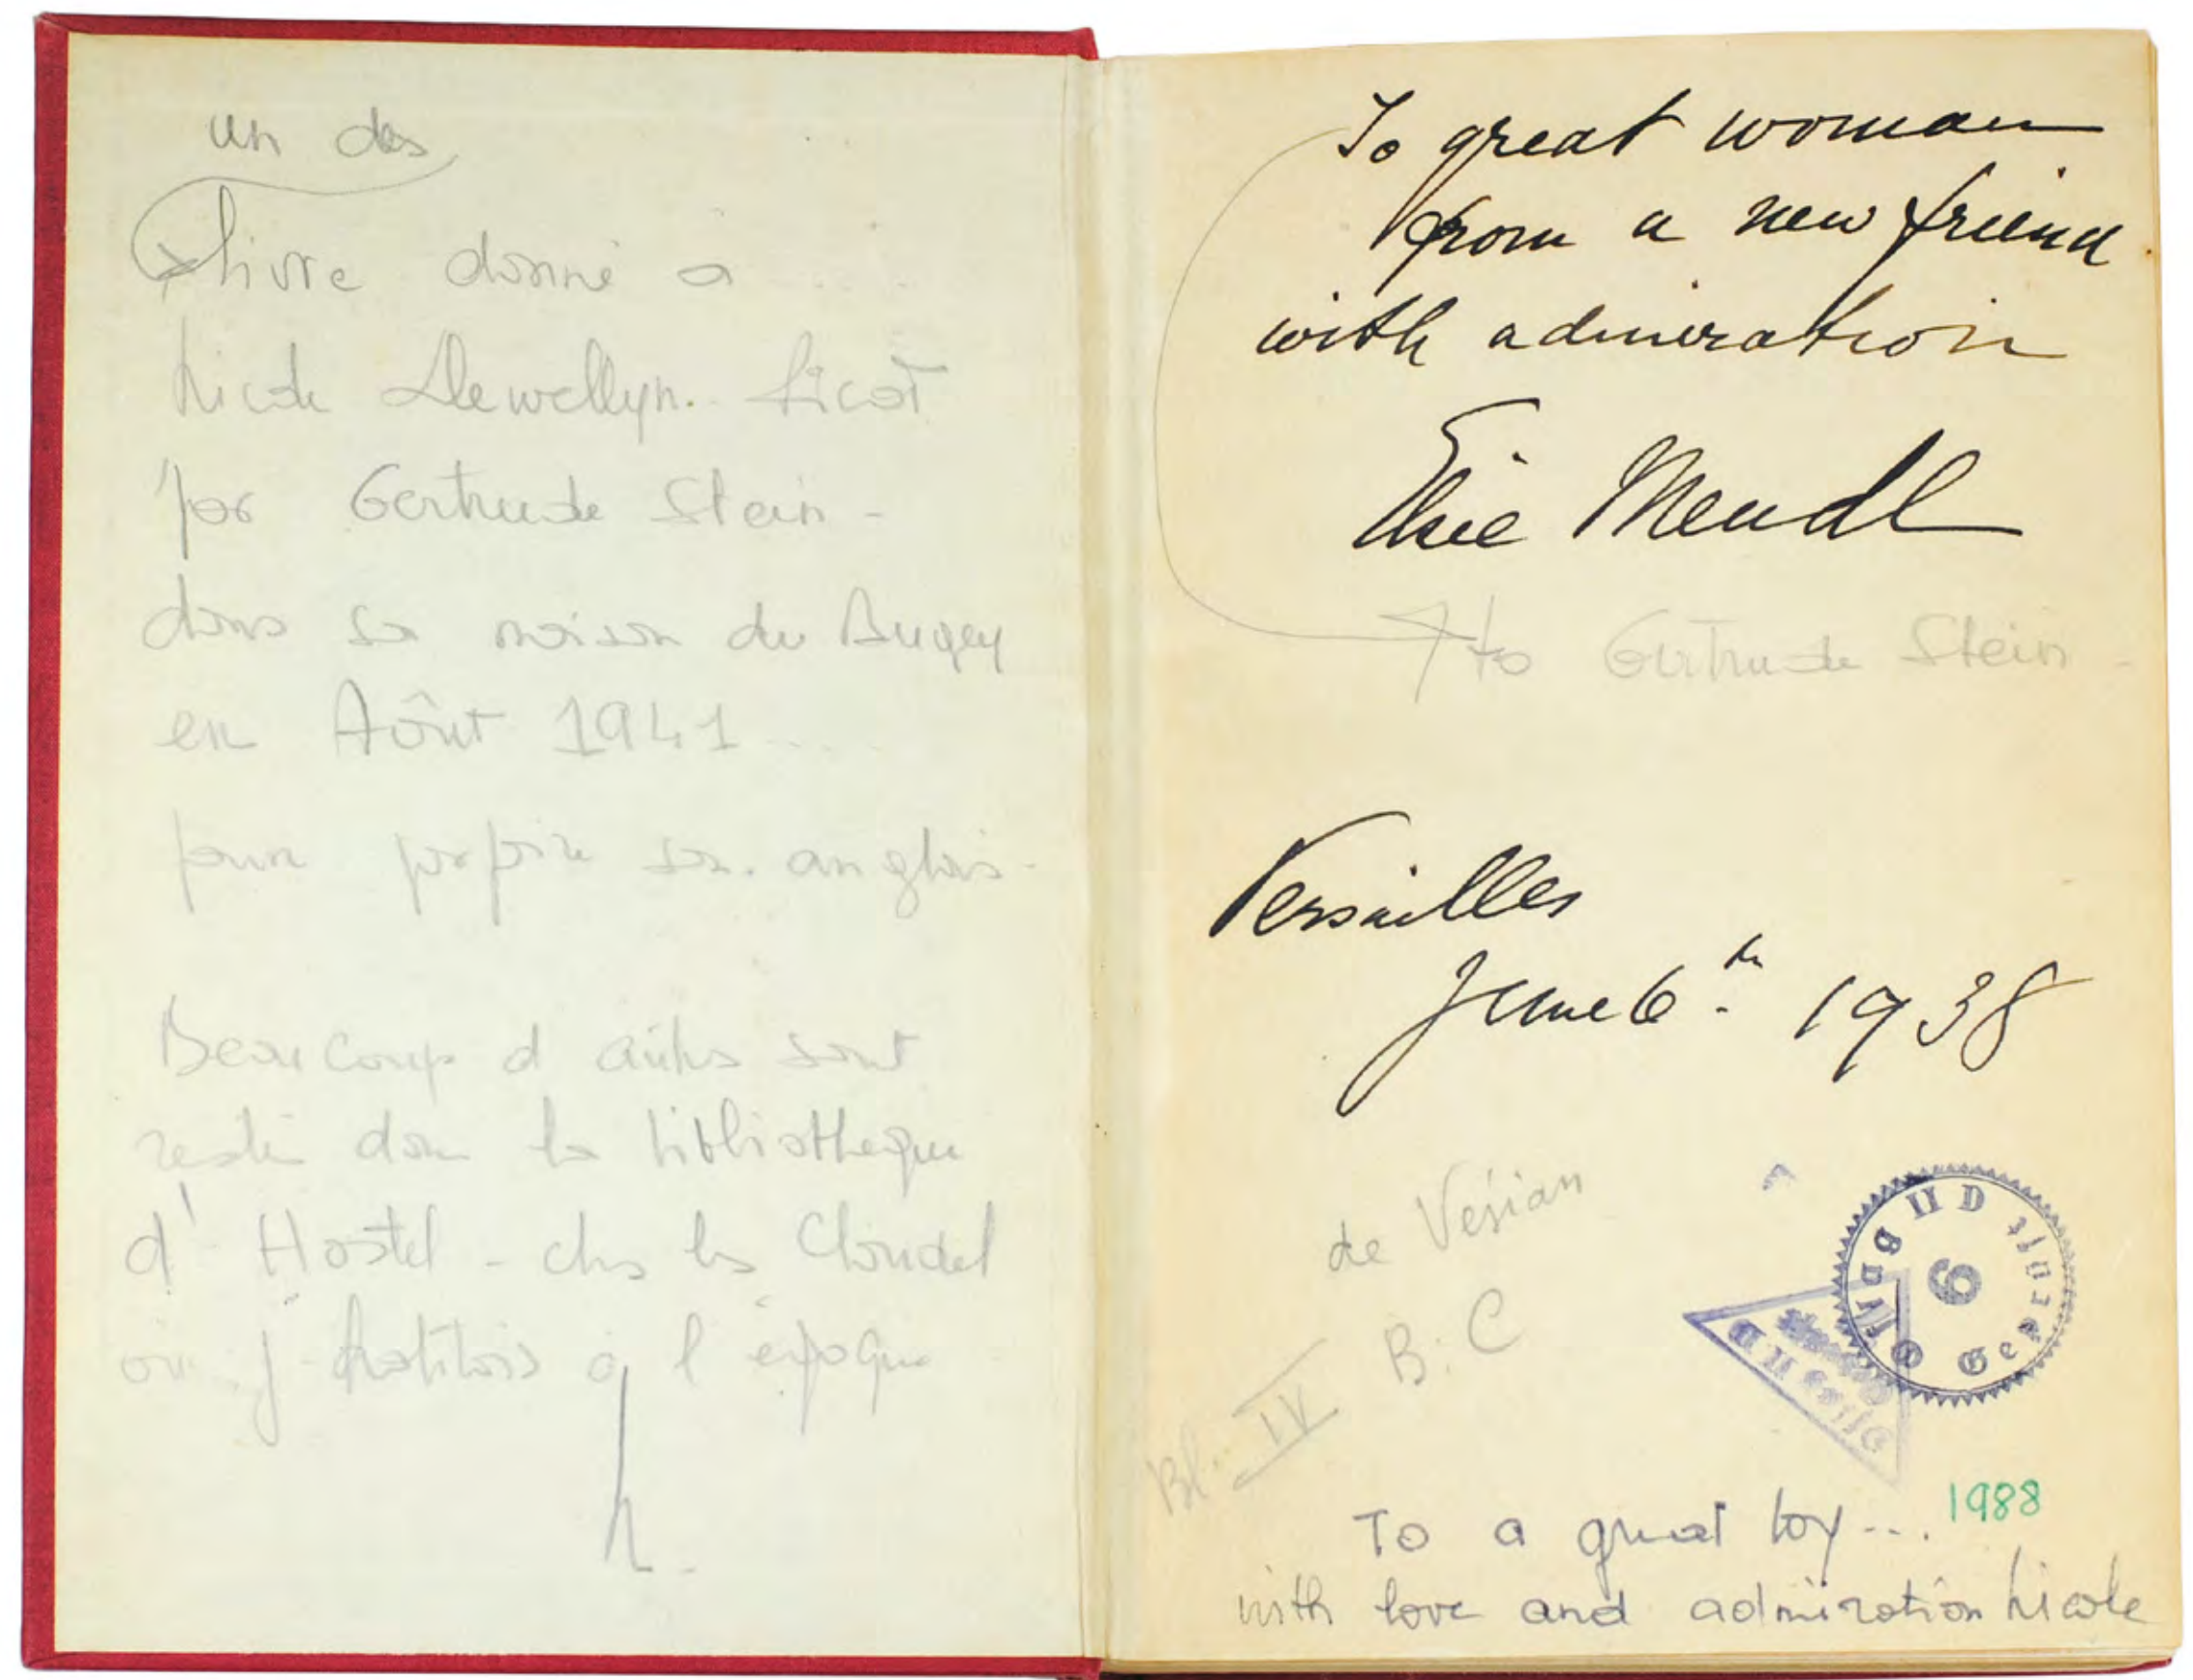 un des
livre donné a
Nicole Llewellyn. Picot
par Gertrude Stein -
dans sa maison du Bugey
en Aôut 1941
pour parfaire son anglais -
Beaucoup d autres sont
resté dans la bibliotheque
d' Hostel - chs les Claudel
où j habitais à l'époque
N.
To great woman
from a new friend
with admiration
Elsie Mendl
to Gertrude Stein -
Versailles
June 6th 1938
de Vésian
B. C
Bl. IV
Oflag II D
6
Geprüft
To a great boy ... 1988
with love and admiration Nicole